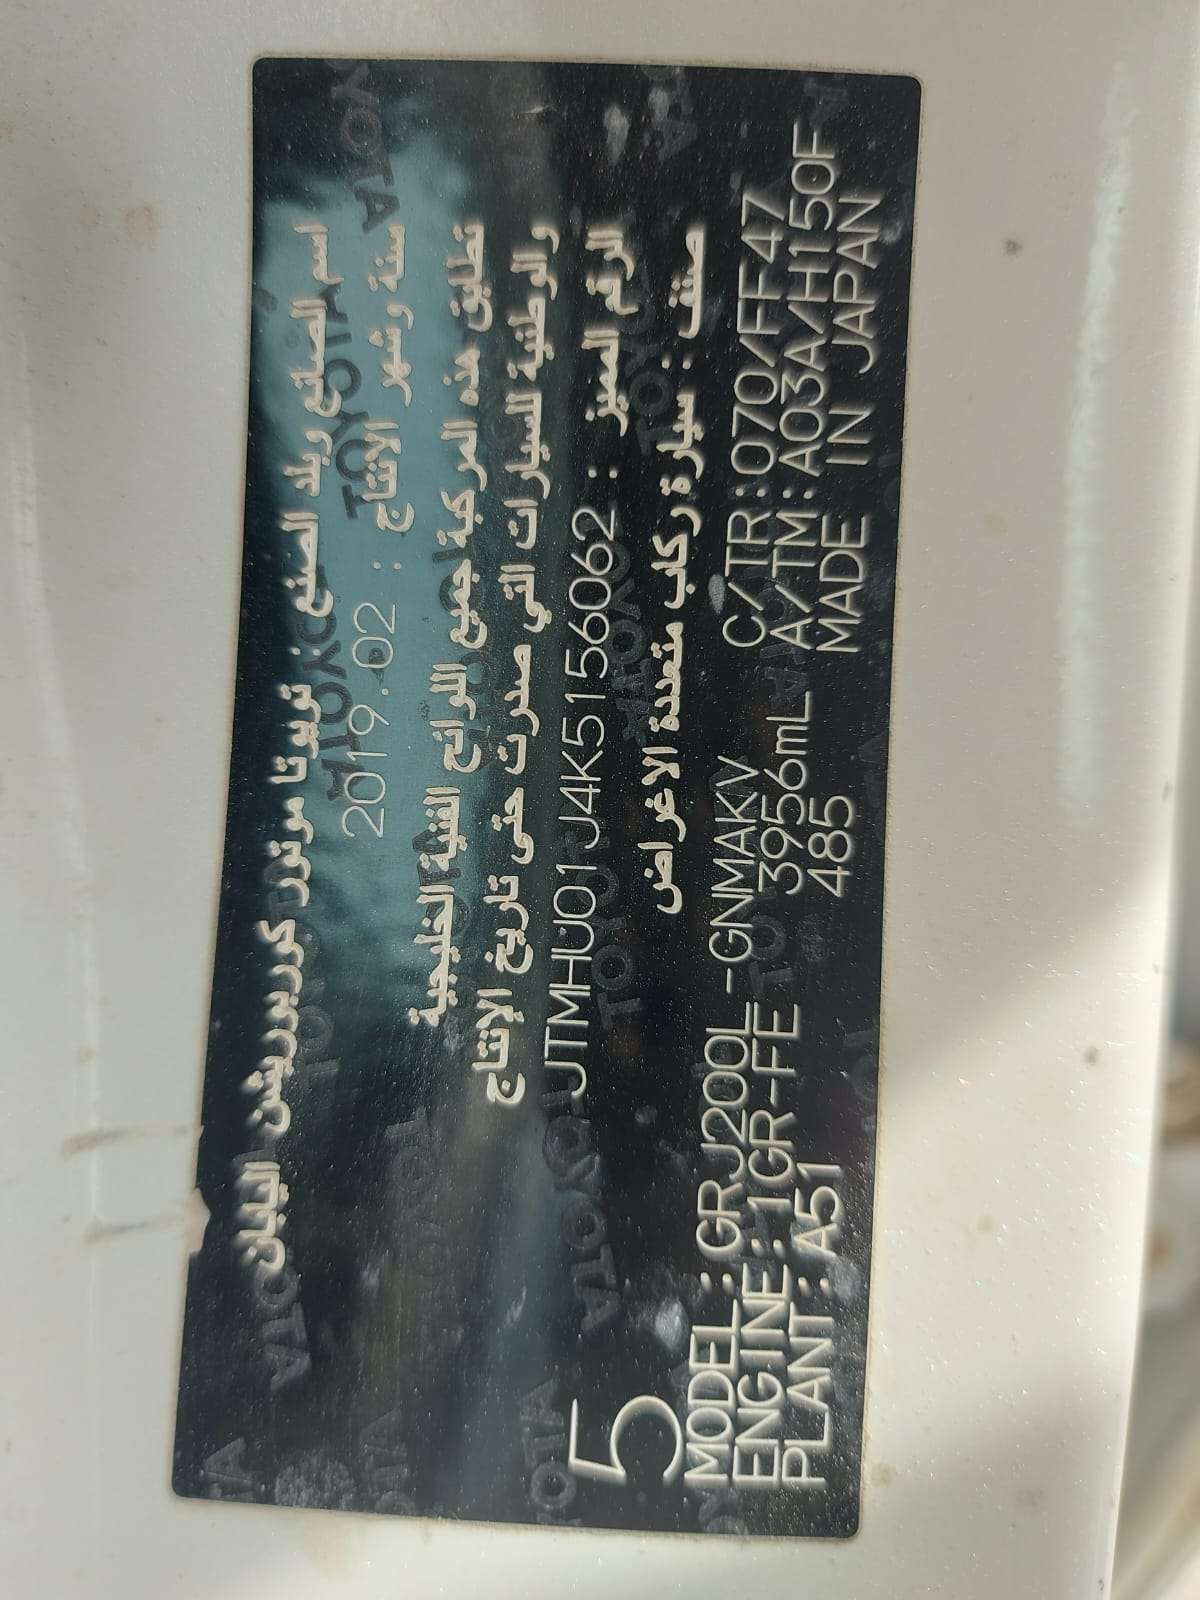 اسم الصانع وبلد الصنع: تويوتا موتور كوربوريشن اليابان
سنة وشهر الانتاج : 2019.02
تطابق هذه المركبة جميع اللوائح الفنية الخليجية
والوطنية للسيارات التي صدرت حتى تاريخ الانتاج
الرقم المميز : JTMHU01J4K5156062
صنف : سيارة ركاب متعددة الاغراض
5
MODEL:GRJ200L-GNMAKV C/TR:070/FF47
ENGINE:1GR-FE 3956mL A/TM:A03A/H150F
PLANT:A51 485 MADE IN JAPAN